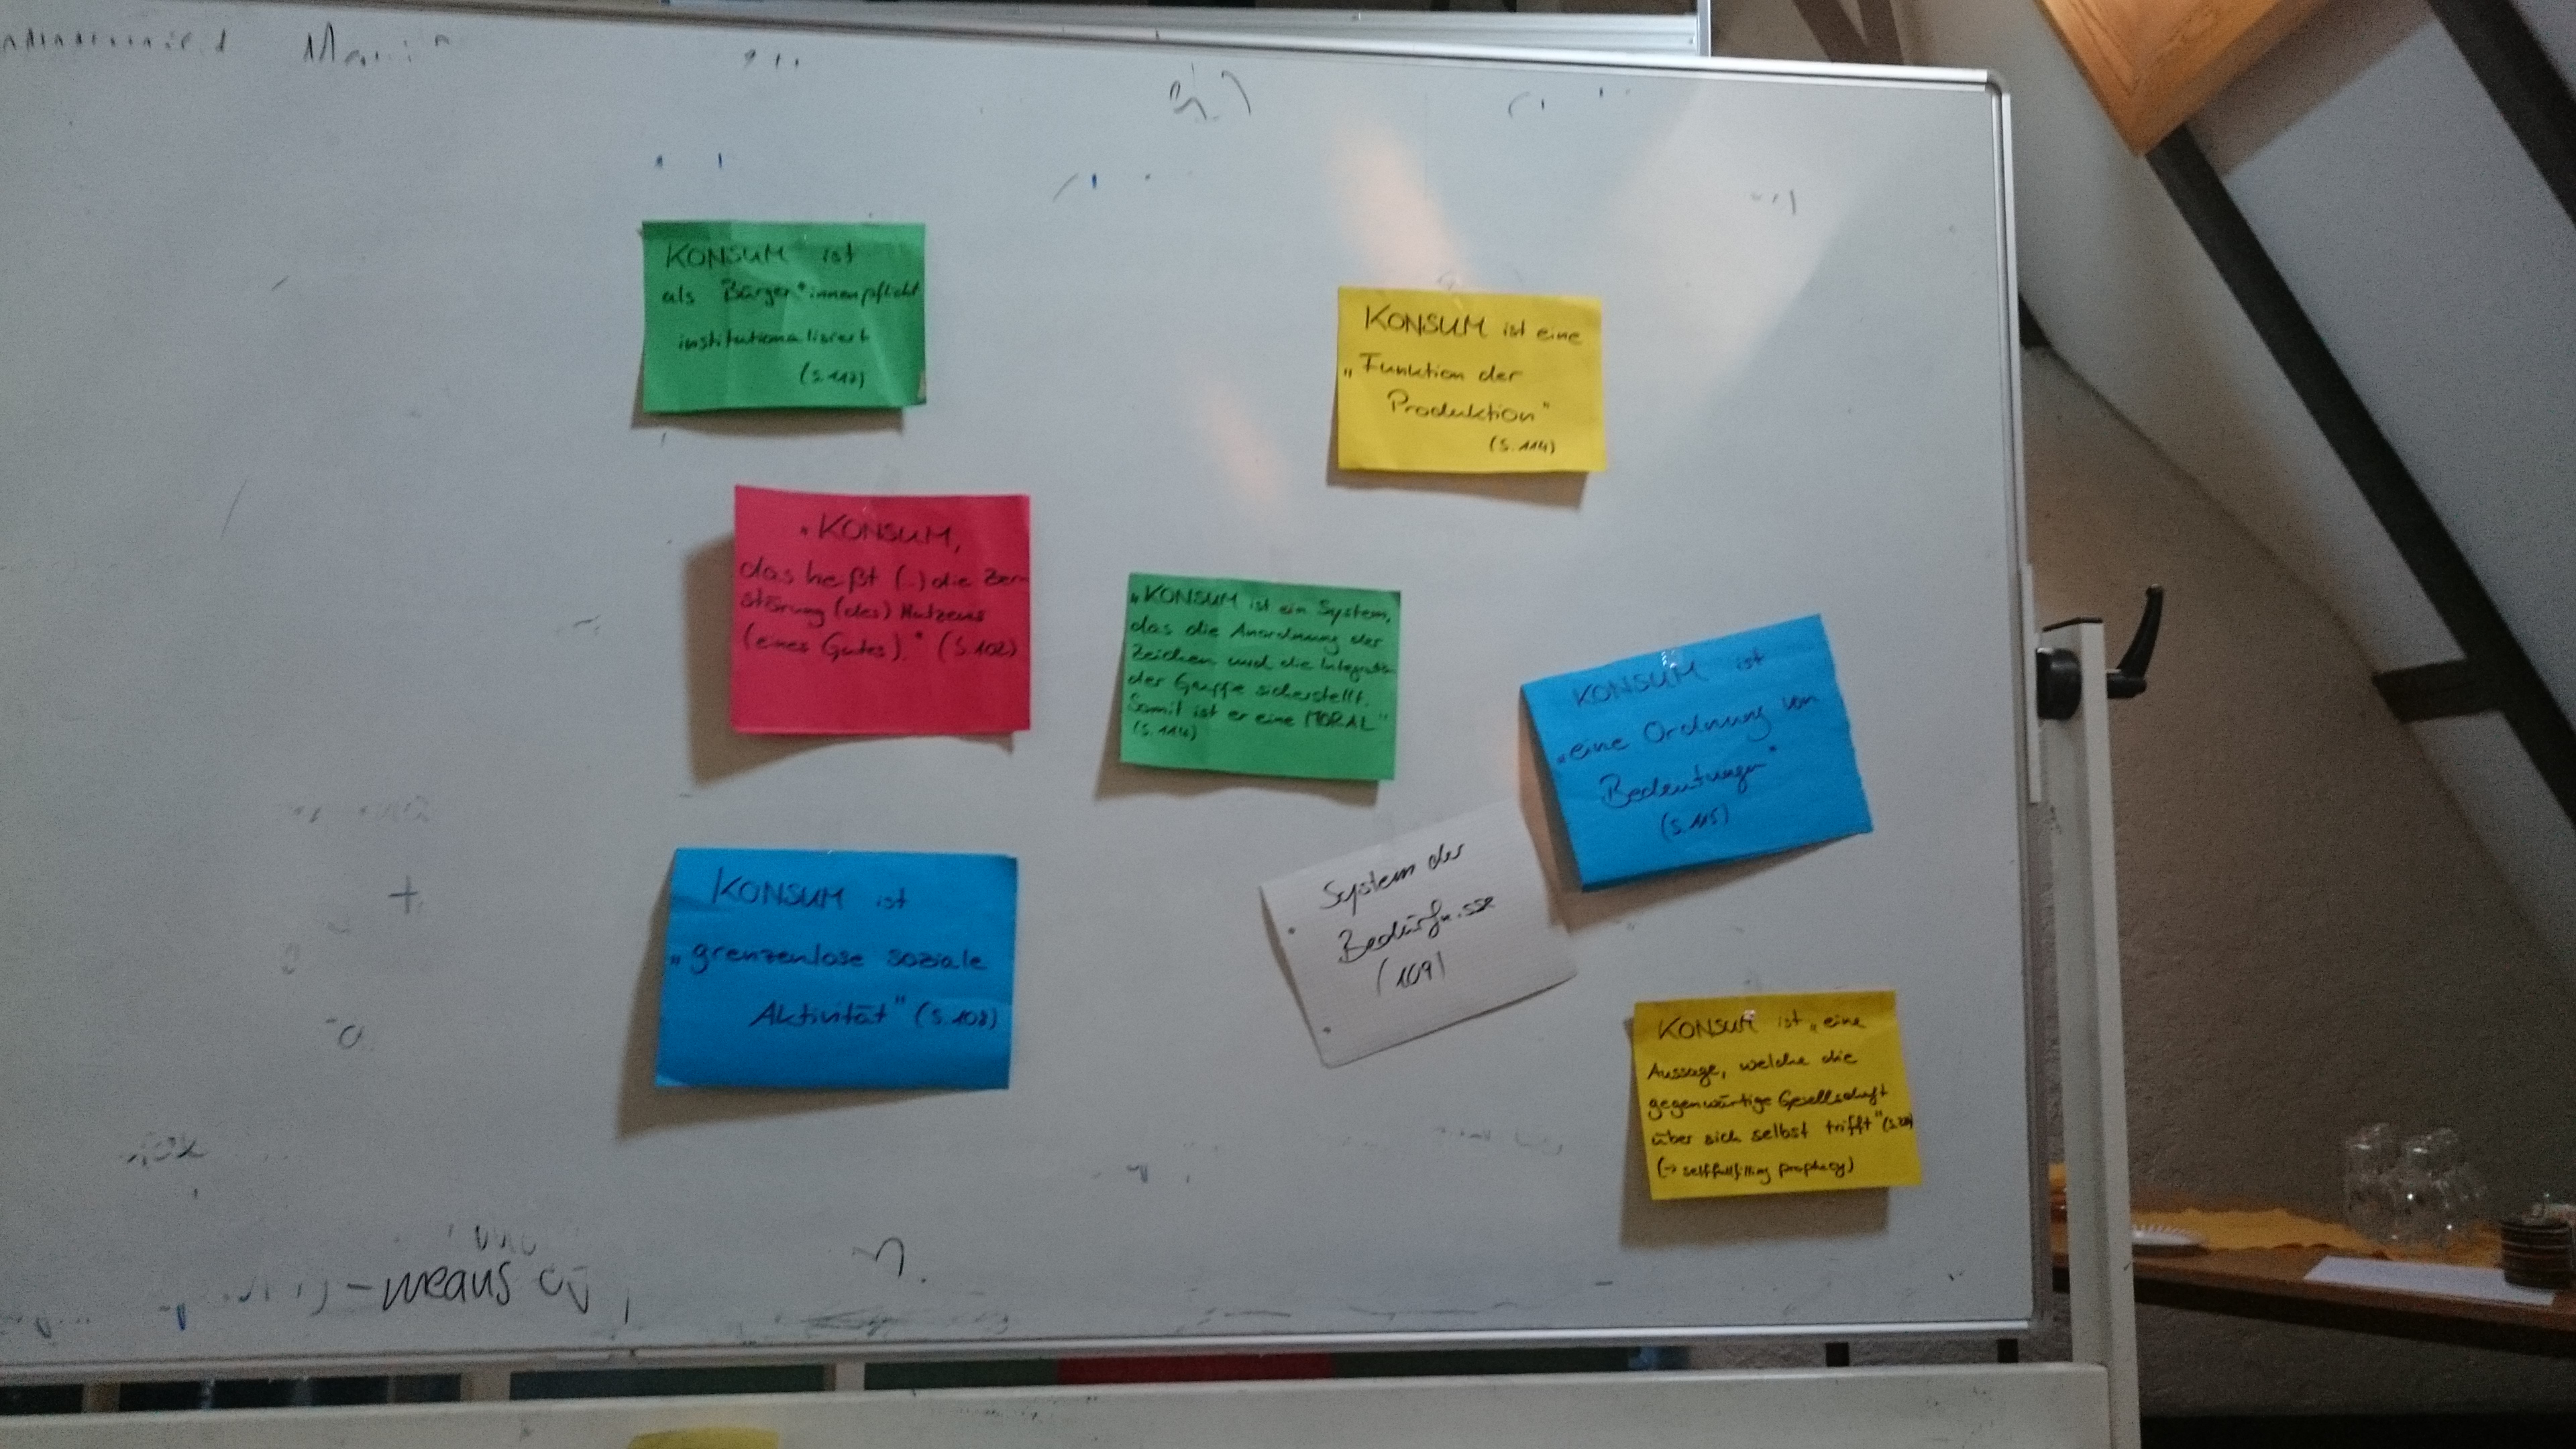 KONSUM ist
als Bürger*innenpflicht
institutionalisiert
(S.117)
KONSUM ist eine
„Funktion der
Produktion"
(S.114)
„KONSUM,
das heßt (..) die Zer-
störung (des) Nutzens
(eines Gutes)." (S.102)
„KONSUM ist ein System,
das die Anordnung der
Zeichen und die Integration
der Gruppe sicherstellt.
Somit ist er eine MORAL"
KONSUM ist
„eine Ordnung von
Bedeutungen"
(S.115)
KONSUM ist
„grenzenlose soziale
Aktivität"
System der
Bedürfnisse
(109)
KONSUM ist „eine
Aussage, welche die
gegenwärtige Gesellschaft
über sich selbst trifft"
(→ selffullfilling prophecy)
-means